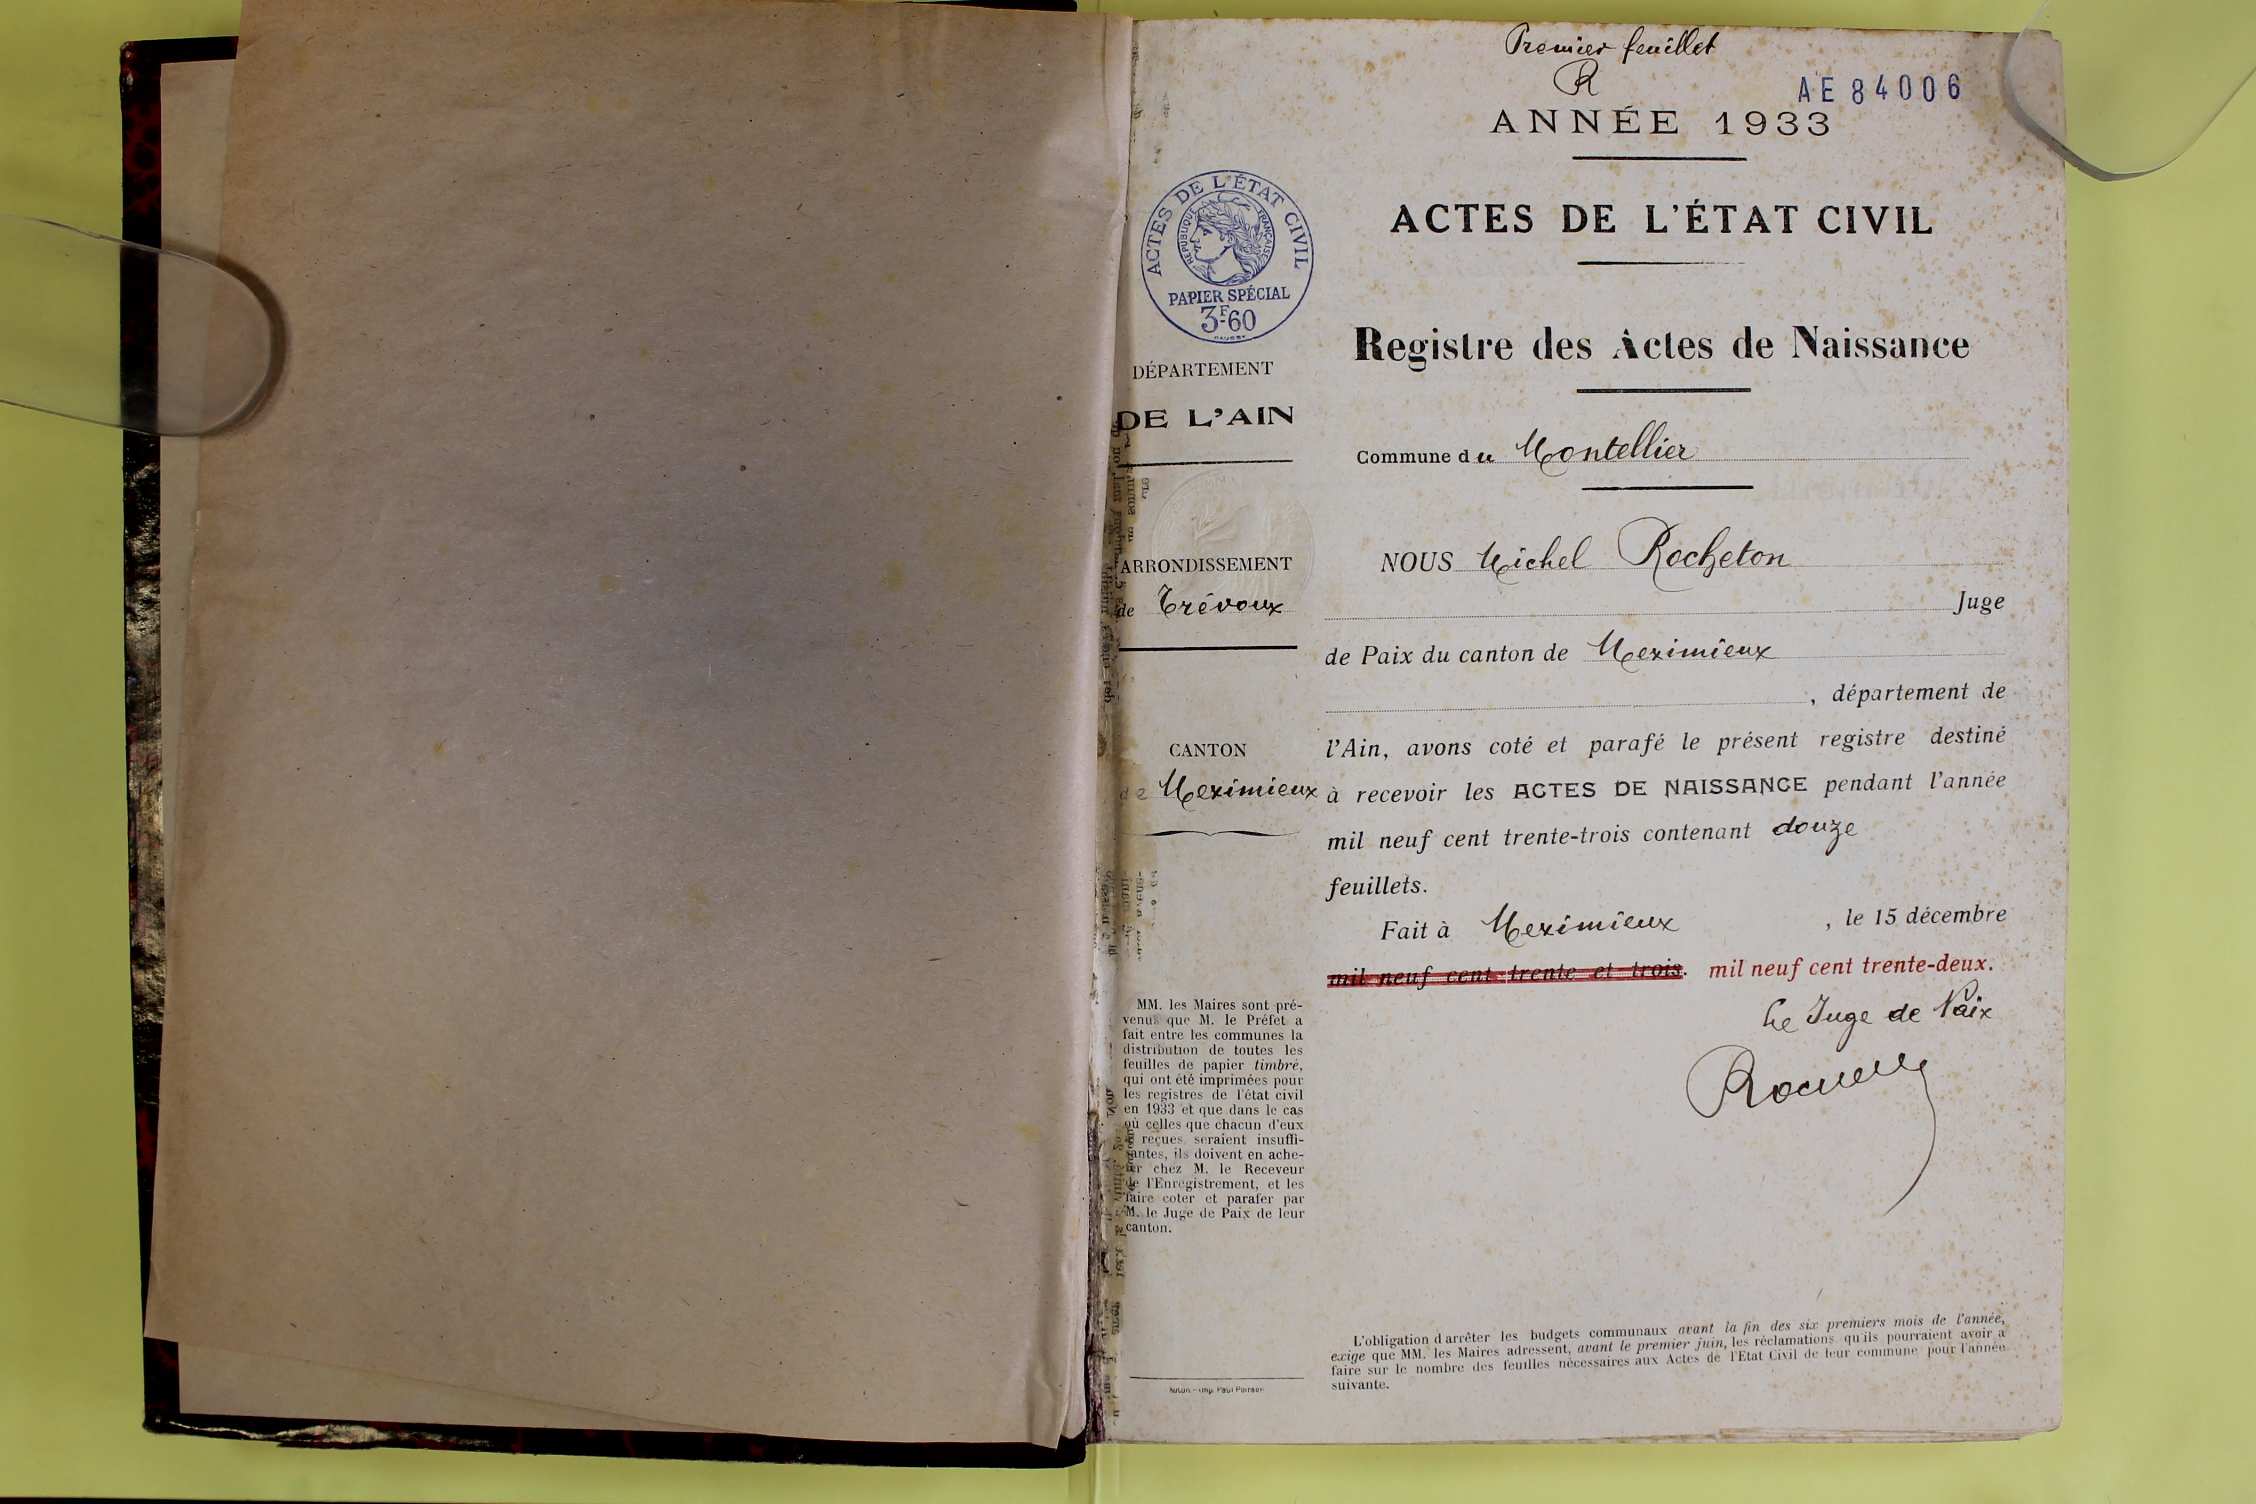 Premier feuillet
R
AE 84006
ANNÉE 1933
ACTES DE L'ÉTAT CIVIL
RÉPUBLIQUE FRANÇAISE
PAPIER SPÉCIAL
3F-60
DÉPARTEMENT
DE L'AIN
ARRONDISSEMENT
de Trévoux
CANTON
de Meximieux
MM. les Maires sont pré-
venus que M. le Préfet a
fait entre les communes la
distribution de toutes les
feuilles de papier timbré,
qui ont été imprimées pour
les registres de l'état civil
en 1933 et que dans le cas
où celles que chacun d'eux
reçues seraient insuffi-
santes, ils doivent en ache-
ter chez M. le Receveur
de l'Enregistrement, et les
faire coter et parafer par
M. le Juge de Paix de leur
canton.
ACTES DE L'ÉTAT CIVIL
Registre des Actes de Naissance
Commune du Montellier
NOUS Michel Rocheton
Juge
de Paix du canton de Meximieux
, département de
l'Ain, avons coté et parafé le présent registre destiné
à recevoir les ACTES DE NAISSANCE pendant l'année
mil neuf cent trente-trois contenant douze
feuillets.
Fait à Meximieux , le 15 décembre
mil neuf cent trente et trois. mil neuf cent trente-deux.
Le Juge de Paix
L'obligation d'arrêter les budgets communaux avant la fin des six premiers mois de l'année,
exige que MM. les Maires adressent, avant le premier juin, les réclamations qu'ils pourraient avoir à
faire sur le nombre des feuilles nécessaires aux Actes de l'Etat Civil de leur commune pour l'année
suivante.